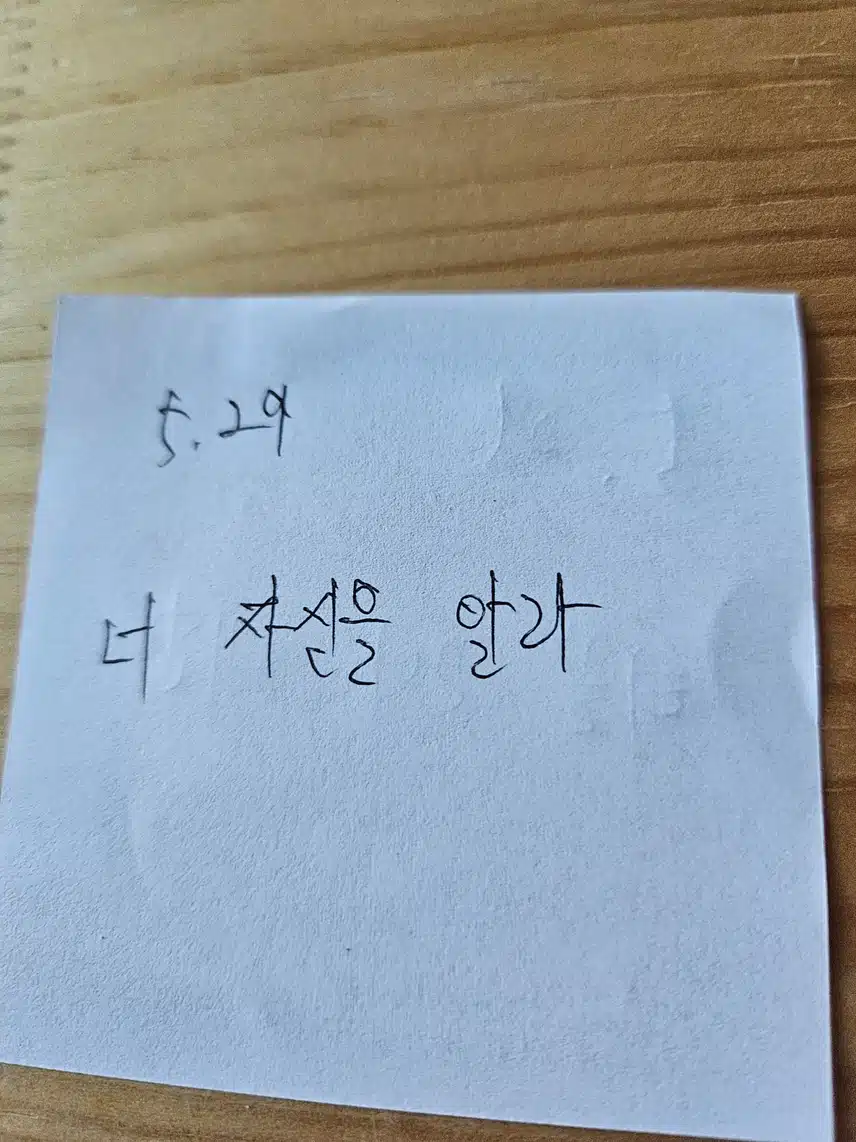 5.29
너 자신을 알라